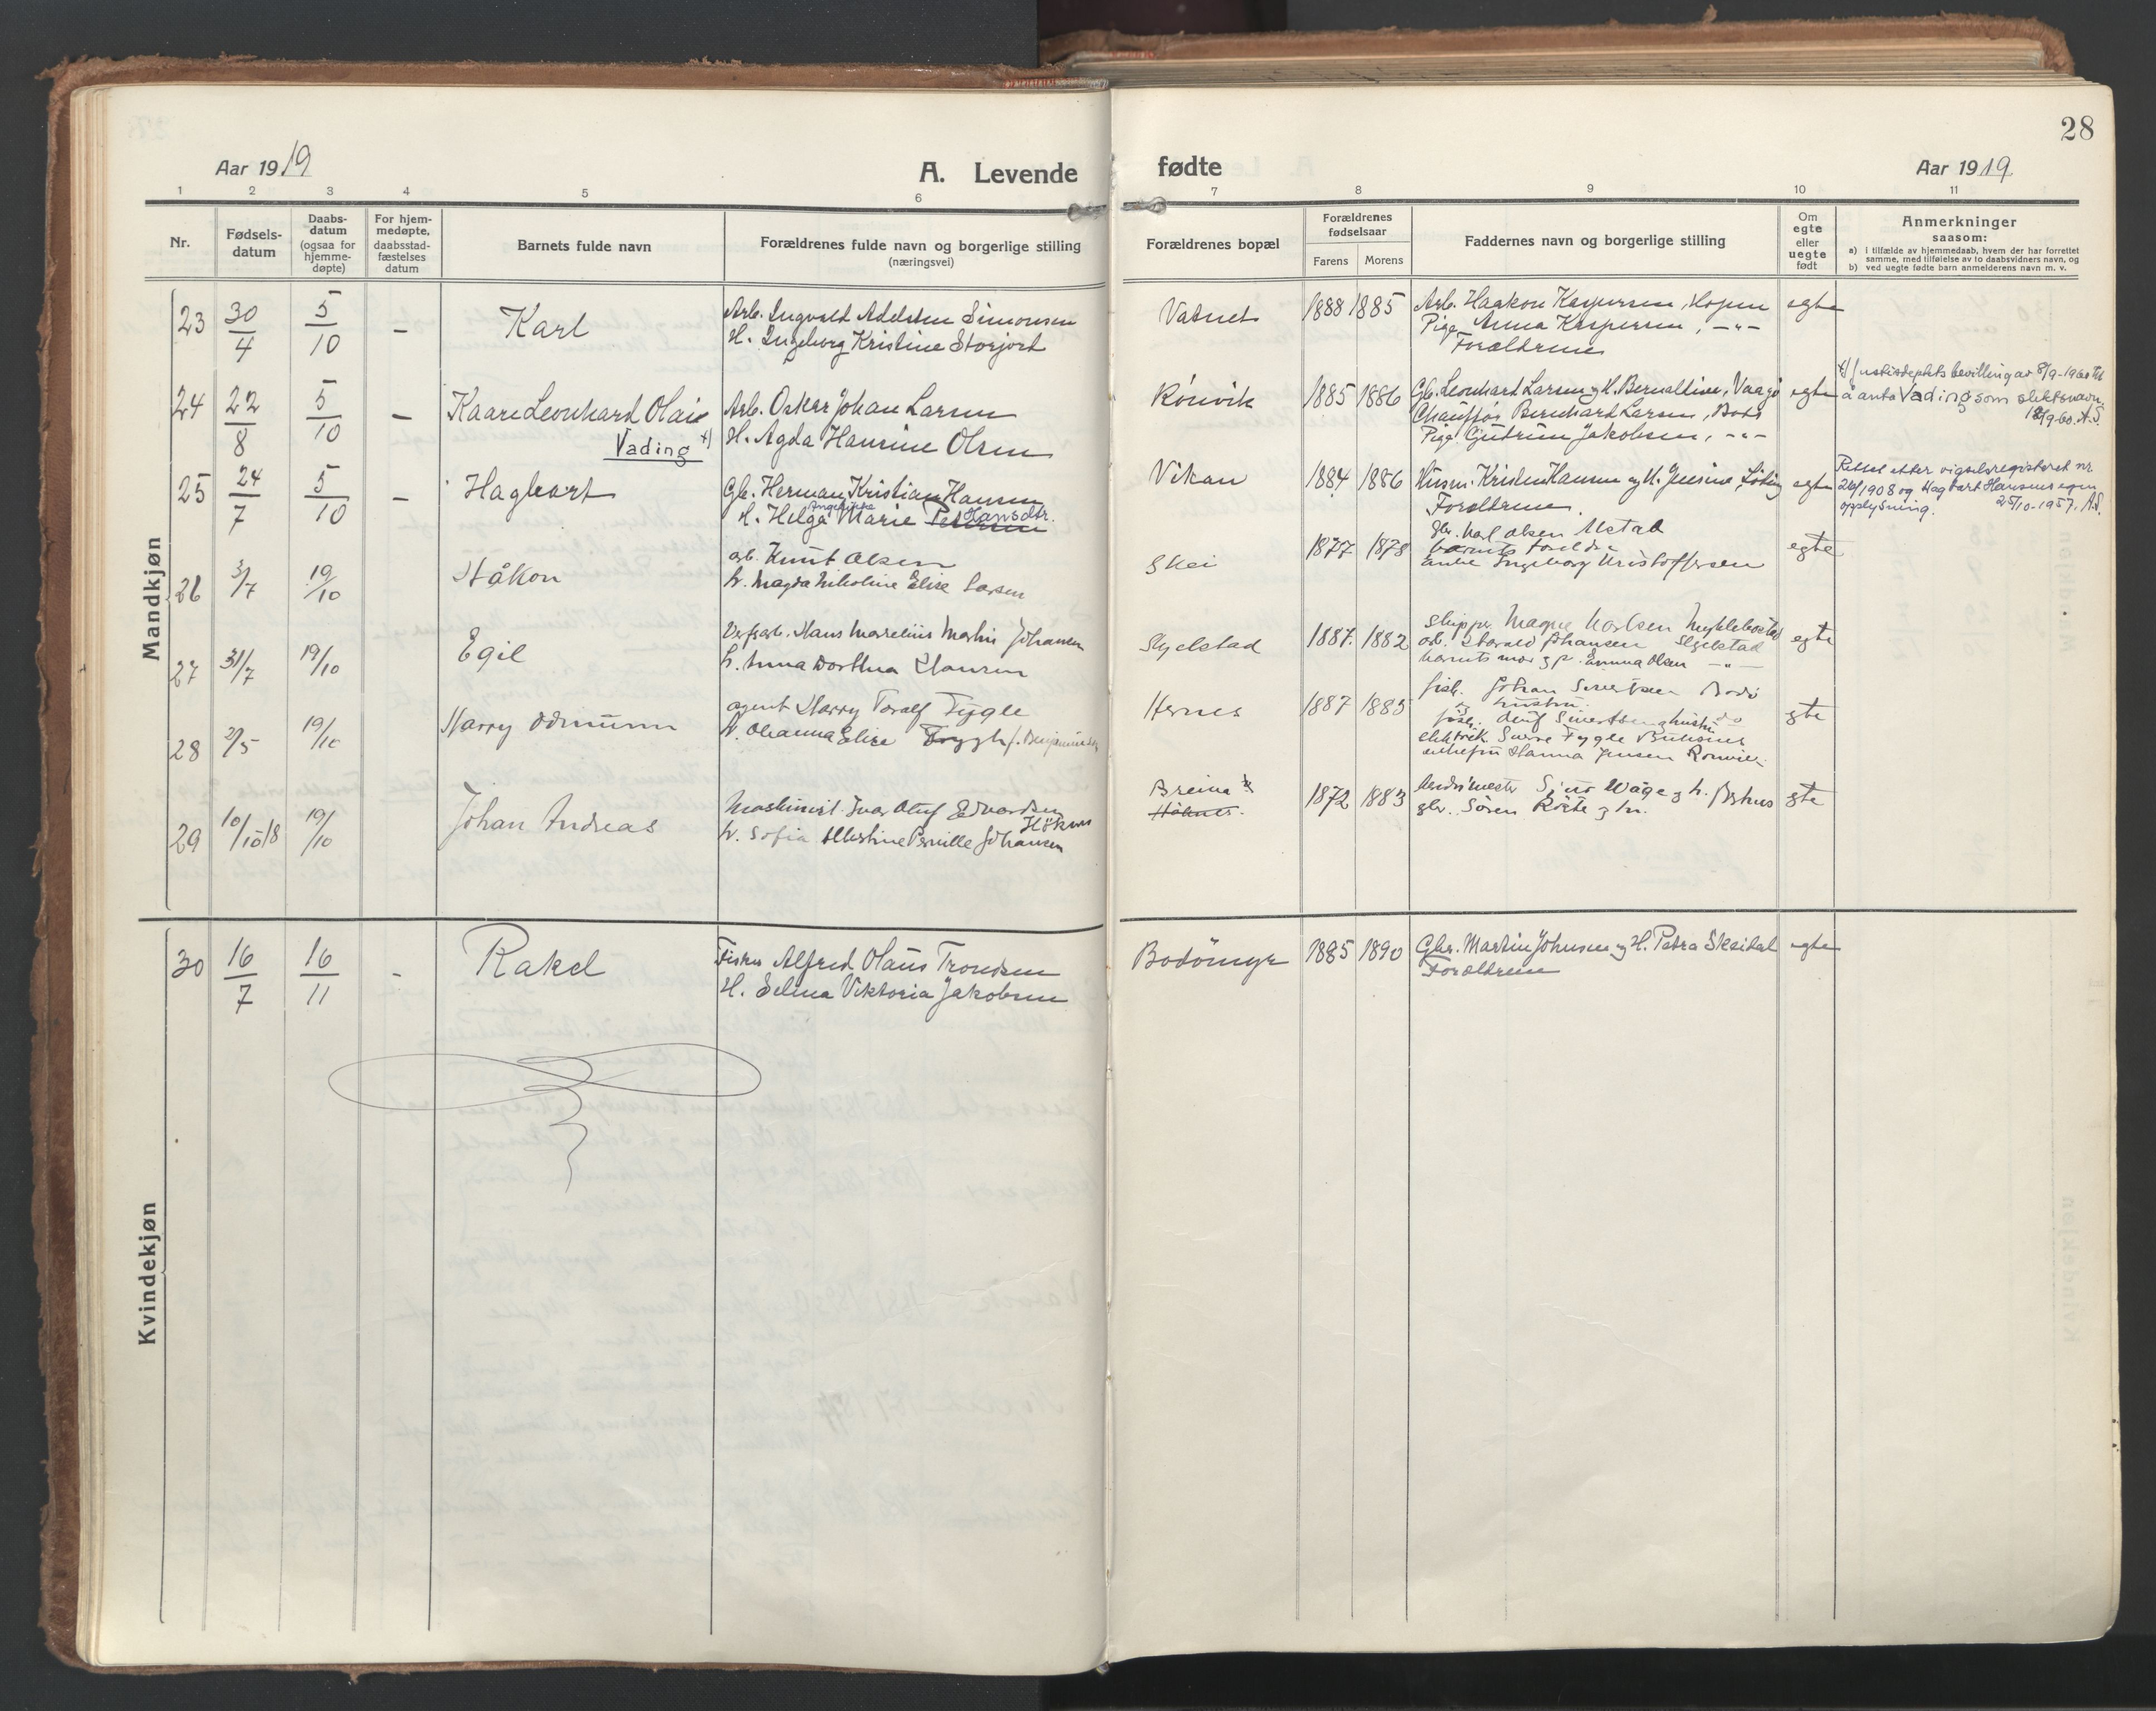 28
Aar 1919
A. Levende fødte
Aar 1919
1 2 3 4 5 6 7 8 9 10 11
Nr.
Fødsels-
datum
Daabs-
datum
(ogsaa for
hjemme-
døpte)
For hjem-
medøpte,
daabsstad-
fæstelses
datum
Barnets fulde navn
Forældrenes fulde navn og borgerlige stilling
(næringsvei)
Forældrenes bopæl
Forældrenes
fødselsaar
Farens Morens
Faddernes navn og borgerlige stilling
Om
egte
eller
uegte
født
Anmerkninger
saasom:
a) i tilfælde av hjemmedaab, hvem der har forrettet
samme, med tilføielse av to daabsvidners navn, og
b) ved uegte fødte barn anmelderens navn m. v.
Mandkjøn
23 30/4 5/10 – Karl
Arb. Ingvald Adelsten Simonsen
H. Ingeborg Kristine Storjord
Vatnet 1888 1885
Arb. Haakon Kaspersen, Hopen
Pige Anna Kaspersen, -"-
Forældrene
egte
24 22/8 5/10 – Kaare Leonhard Olai
Vading +)
Arb. Oskar Johan Larsen
H. Agda Haurine Olsen
Rönvik 1885 1886
Gb. Leonhard Larsen og H. Bernaltine, Vaagö
Chauffør Bernhard Larsen, Bodö
Pige Gudrun Jakobsen, -"-
egte
+) Justisdeptets bevilling av 8/9-1960 til
å anta Vading som slektsnavn.
12/9-60. A.S.
25 24/7 5/10 – Hagbart
Gb. Herman Kristian Hansen
H. Helga Marie Hansdtr.
Vikan 1884 1886
Husm. Kristen Hansen og H. Jensine, Löding
Forældrene.
egte
Rettet etter vigselsregisteret nr
26/1908 og Hagbart Hansens egen
opplysning. 25/10-1957. A.S.
26 3/7 19/10 Håkon
arb. Knut Olsen
h. Magda Nikoline Elise Larsen
Skei 1877 1878
gbr. Karl Olsen Alstad
barnets foreldre
enke Ingeborg Kristoffersen
egte
27 31/7 19/10 Egil
Verftsarb. Hans Marelius Martin Johansen
h. Anna Dorthea Hansen
Skjelstad 1887. 1882
Skipper Magne Karlsen Myklebostad
arb. Harald Johansen Skjelstad
barnets mor og p. Emma Olsen -"-
egte
28 2/5 19/10 Harry Odmunn
agent Harry Toralf Fygle
h. Oleanna Elise f. Benjaminsen
Hernes 1887 1885
fisk. Johan Sivertsen Bodö
og hustru
fisk. Oluf Sivertsen og hustru do
elektrik. Sverre Fygle Buksnes
enkefru Hanna Jensen Rönvik
egte
29 10/10 18 19/10 Johan Andreas
Maskinist Ivar Oluf Edvardsen
Höknes
h. Sofia Albertine Pernille Johansen
Breiva
Höknes. 1872 1883
Wåge og h.
gbr. Sören Röste og h.
egte
Kvindekjøn
30 16/7 16/11 – Rakel
Fisker Alfred Olaus Trondsen
H. Selma Viktoria Jakobsen
Bodömyr 1885 1890
Gbr. Martin Johnsen og H. Petra Skeidal
Forældrene
egte